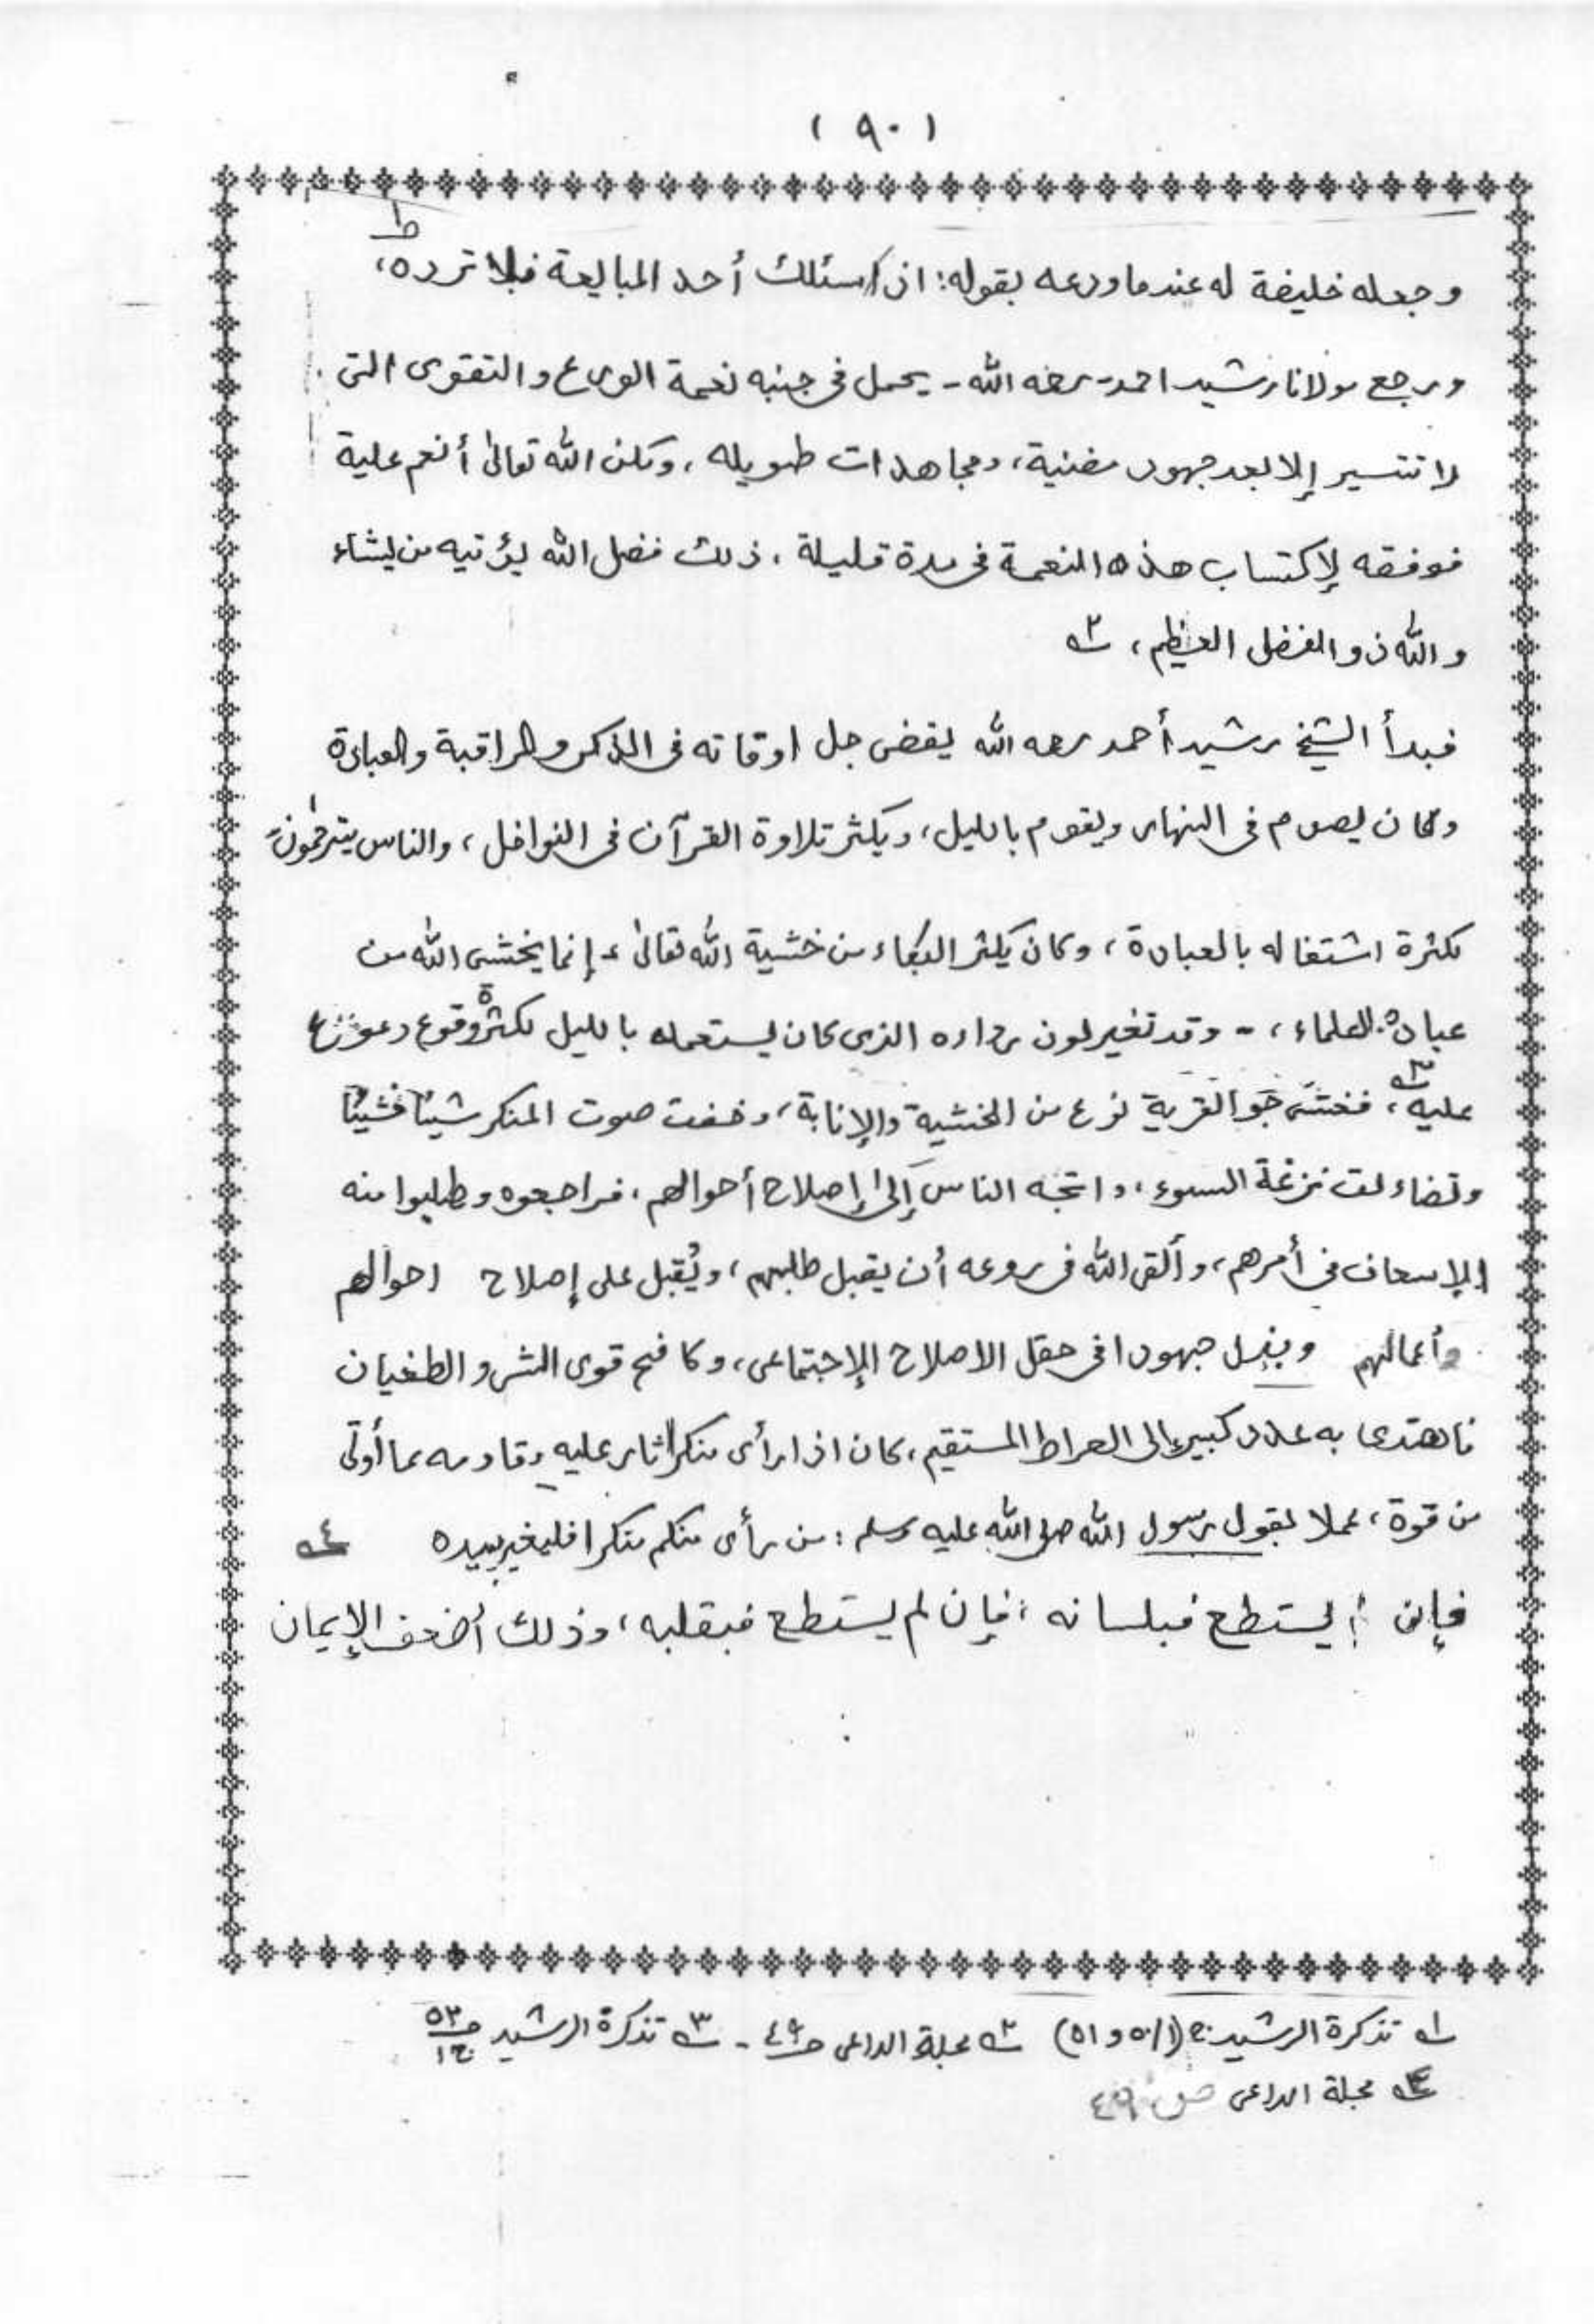 ( ٩٠ )
وجعله خليفة له عندما ودعه بقوله: اذا سئلك أحد المبايعة فلا ترده، ١ـه
ورجع مولانا رشيد احمد - رحمه الله - يحمل فى جنبه نعمة الورع والتقوى التى
لا تتسير إلا بعد جهود مضنية، ومجاهدات طويله، ولكن الله تعالى أنعم علية
فوفقه لإكتساب هذه النعمة فى مدة قليلة، ذلك فضل الله يؤتيه من يشاء
والله ذو الفضل العظيم، ٢ـه
فبدأ الشيخ رشيد أحمد رحمه الله يقضى جل اوقاته فى الذكر والمراقبة والعبادة
وكان يصوم فى النهار ويقوم بالليل، ويكثر تلاوة القرآن فى النوافل، والناس يترحمون
لكثرة اشتغاله بالعبادة، وكان يكثر البكاء من خشية الله تعالى - إنما يخشى الله من
عباده العلماء، - وقد تغير لون رداءه الذى كان يستعمله بالليل لكثرة وقوع دموع
عليه، ٣ـه فغشى جو القرية نوع من الخشية والإنابة، وخفت صوت المنكر شيئا فشيئا
وتضاءلت نزغة السوء، واتجه الناس إلى إصلاح أحوالهم، فراجعوه وطلبوا منه
الإسعاف فى أمرهم، وألقى الله فى روعه أن يقبل طلبهم، ويُقبل على إصلاح احوالهم
وأعمالهم ويبذل جهودا فى حقل الاصلاح الإجتماعى، وكافح قوى الشر والطغيان
فاهتدى به عدد كبير إلى الصراط المستقيم، كان اذا رأى منكرا ثار عليه وقاومه بما أوتى
من قوة، عملا بقول رسول الله صلى الله عليه وسلم: من رأى منكم منكرا فليغير بيده ٤ـه
فإن لم يستطع فبلسانه، فإن لم يستطع فبقلبه، وذلك أضعف الإيمان
١ـه تذكرة الرشيد: ج (١/ ٥٠ و ٥١) ٢ـه مجلة الداعى ص ٤٩ - ٣ـه تذكرة الرشيد ص ٥٣ ج ١
٤ـه مجلة الداعى ص ٤٩